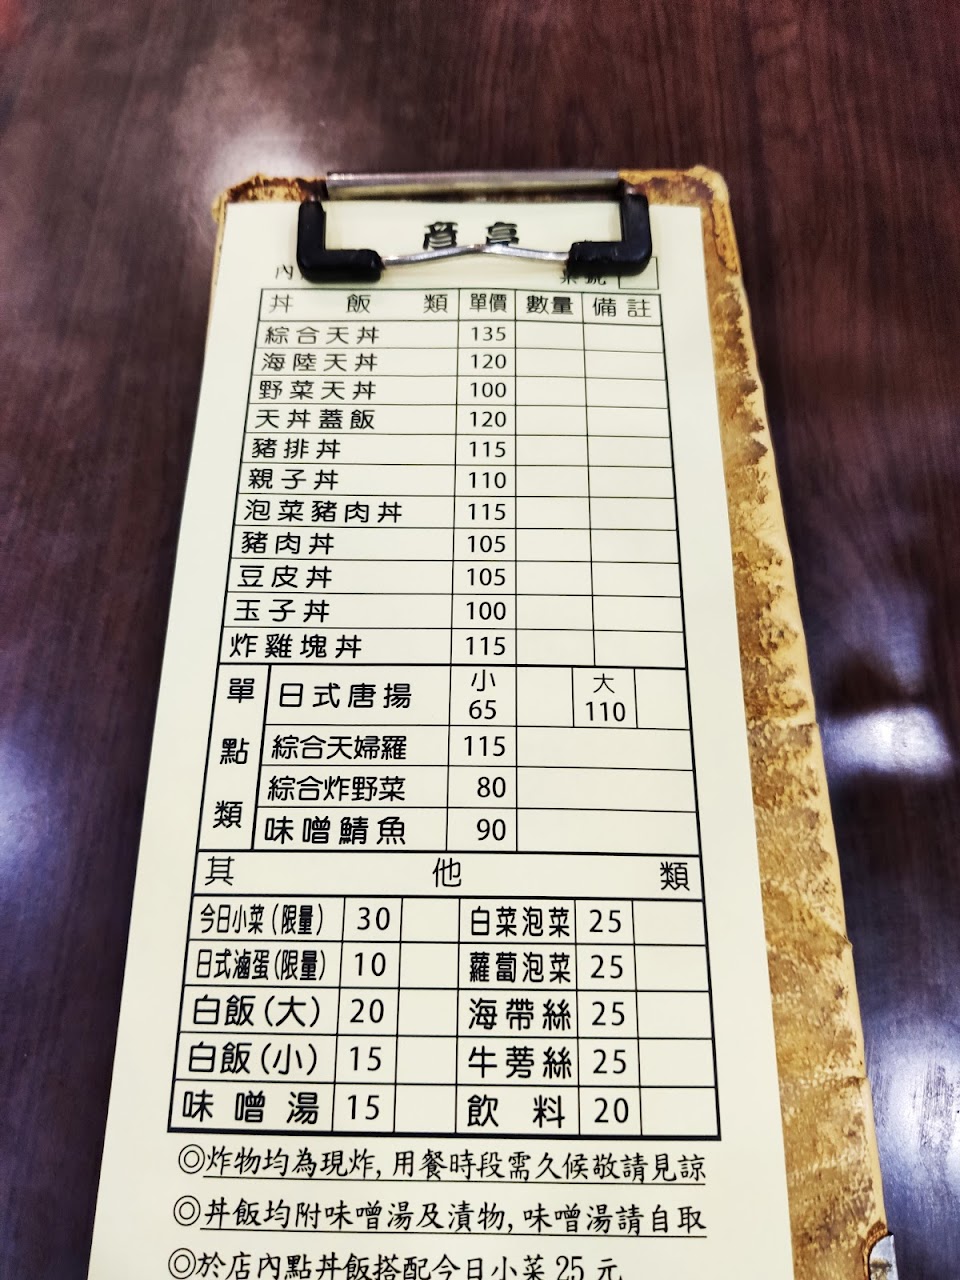 內
丼飯類 單價 數量 備註
綜合天丼 135
海陸天丼 120
野菜天丼 100
天丼蓋飯 120
豬排丼 115
親子丼 110
泡菜豬肉丼 115
豬肉丼 105
豆皮丼 105
玉子丼 100
炸雞塊丼 115
單點類
日式唐揚 小 65 大 110
綜合天婦羅 115
綜合炸野菜 80
味噌鯖魚 90
其他類
今日小菜(限量) 30 白菜泡菜 25
日式滷蛋(限量) 10 蘿蔔泡菜 25
白飯(大) 20 海帶絲 25
白飯(小) 15 牛蒡絲 25
味噌湯 15 飲料 20
◎炸物均為現炸,用餐時段需久候敬請見諒
◎丼飯均附味噌湯及漬物,味噌湯請自取
◎於店內點丼飯搭配今日小菜25元